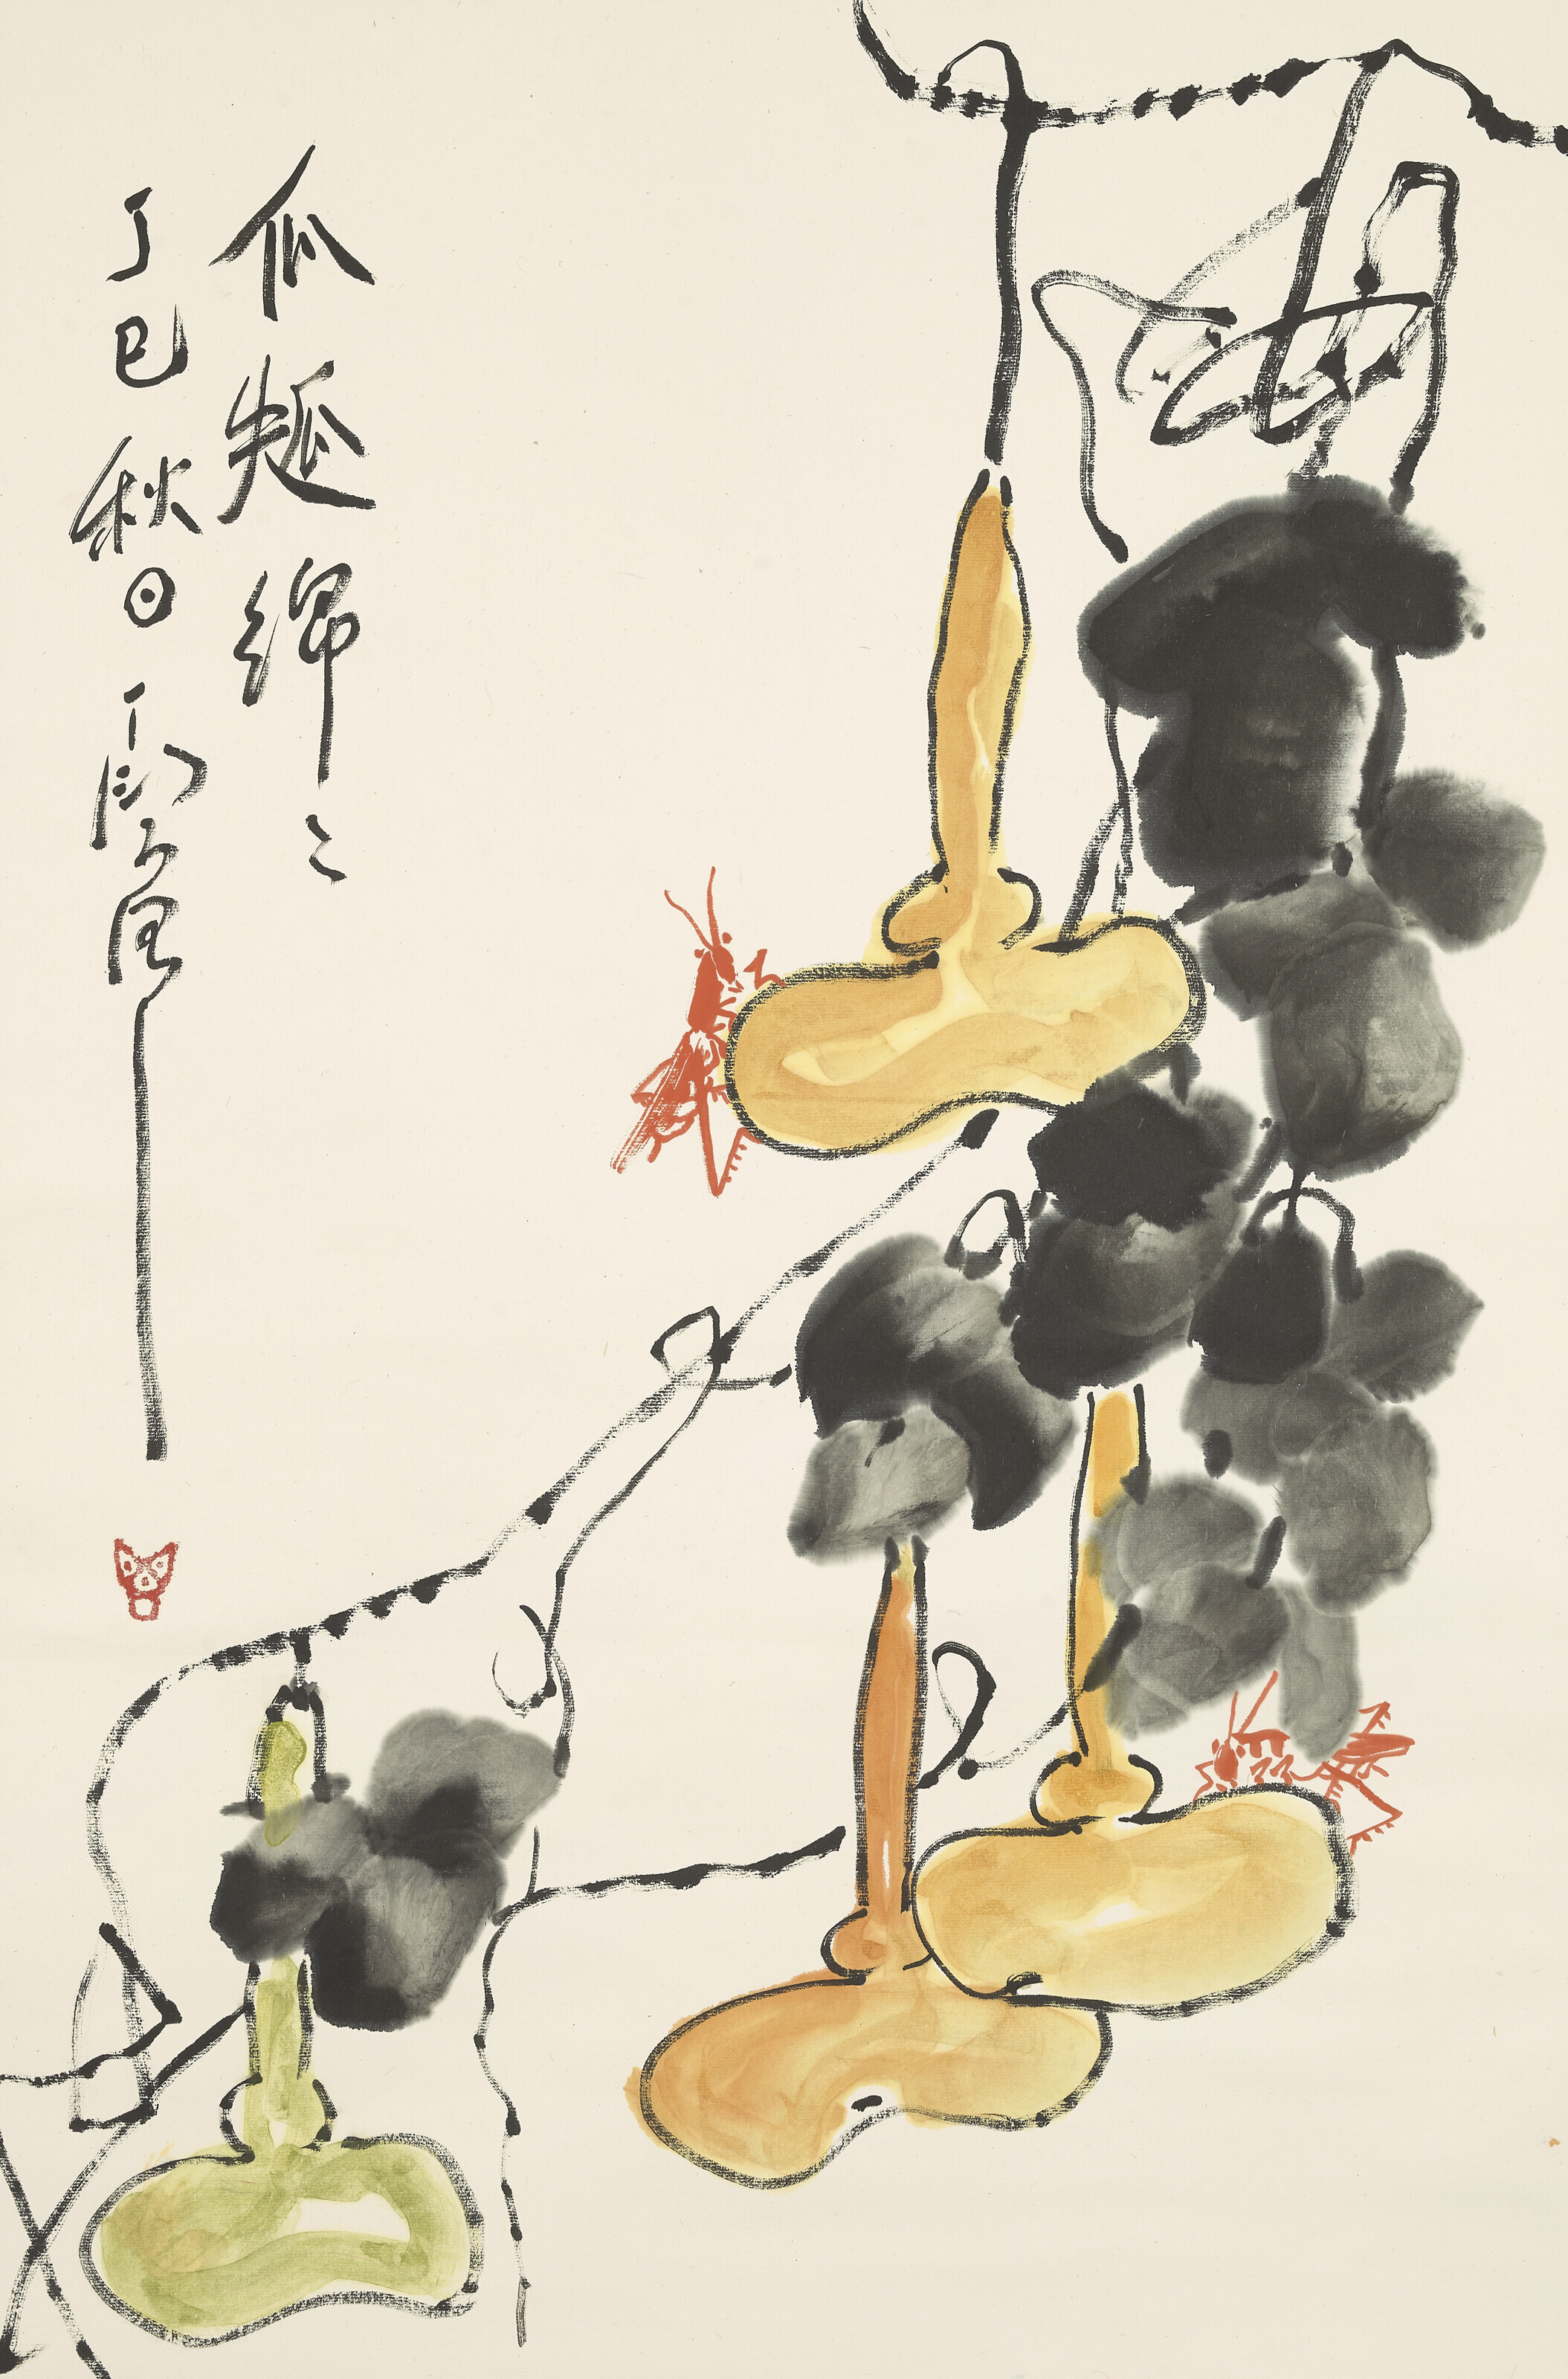 瓜瓞綿〻
丁巳秋日丁衍庸